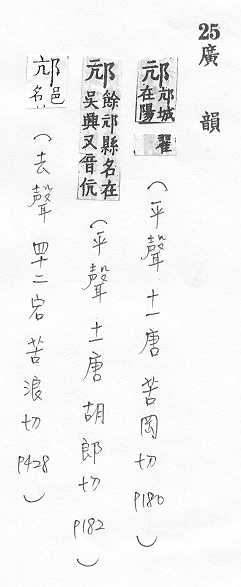 25 廣韻
邟 邟城在陽翟（平聲十一唐苦岡切 P180）
邟 餘邟縣名在吳興又音伉（平聲十一唐胡郎切 P182）
邟 邑名（去聲四十二宕苦浪切 P428）